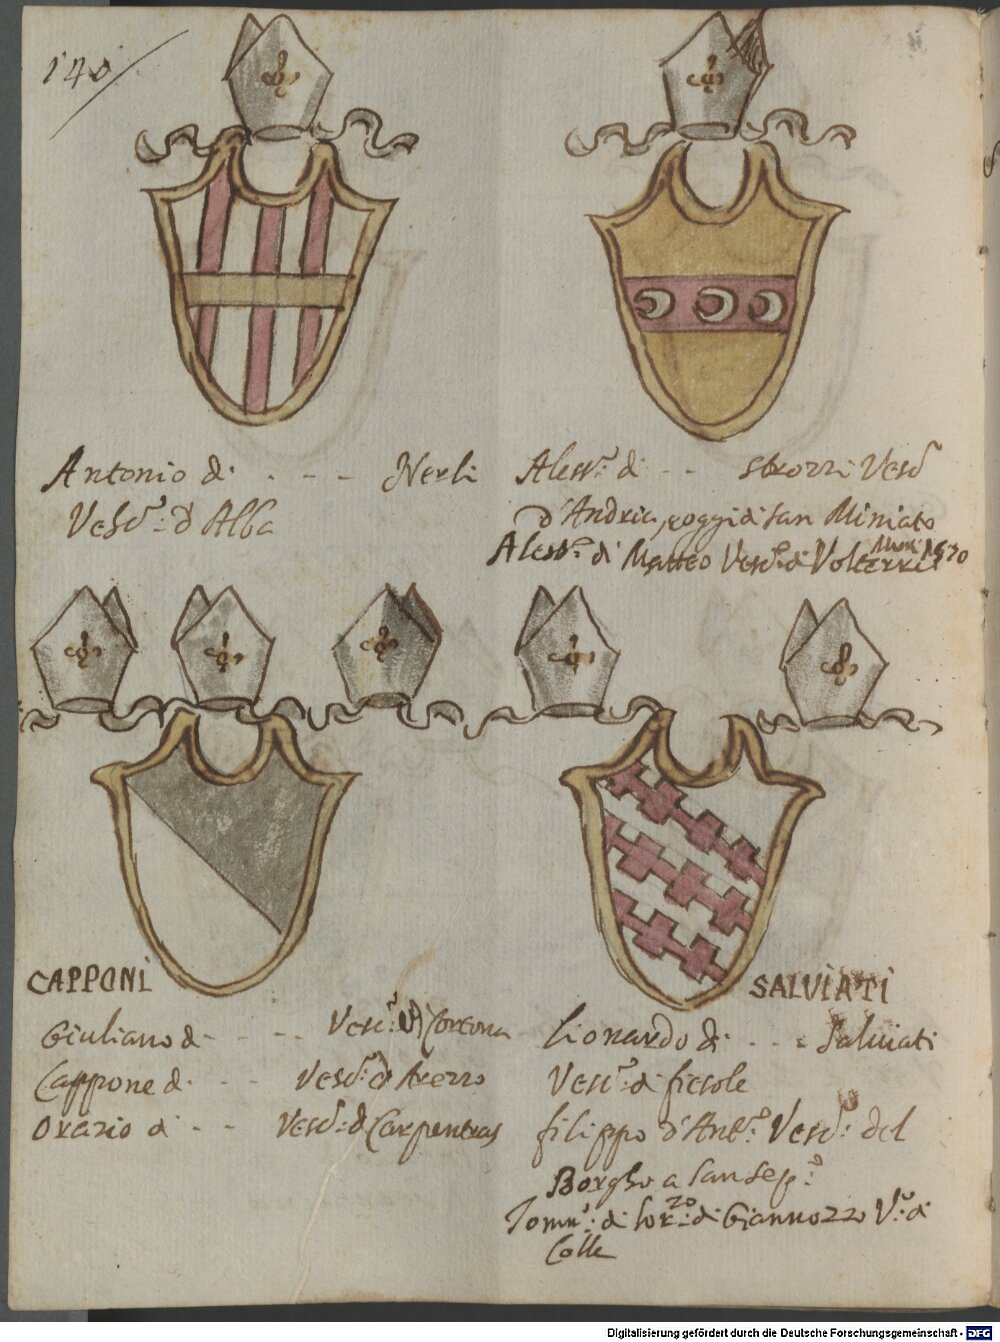 140
Antonio di . - - - Nerli
Vesc.º: d Alba
Aless.º di - - Strozzi Vesc.º
d'Andria, e oggi di San Miniato
Aless.º di Matteo Vesc.º di Volterra
CAPPONI
Giuliano di - - - Vesc.º di Cortona
Cappone di . - - Vesc.º: d Arezzo
Orazio di - - Vesc.º: di Carpentras
SALVIATI
Lionardo di . - - - Salviati
Vesc.º: di fiesole
filippo d'Ant.º: Vesc.º: del
Borgho a San Sep.º
Tomm.º: di Lor.zo: di Giannozzo V.º: di
Colle
Digitalisierung gefördert durch die Deutsche Forschungsgemeinschaft - DFG